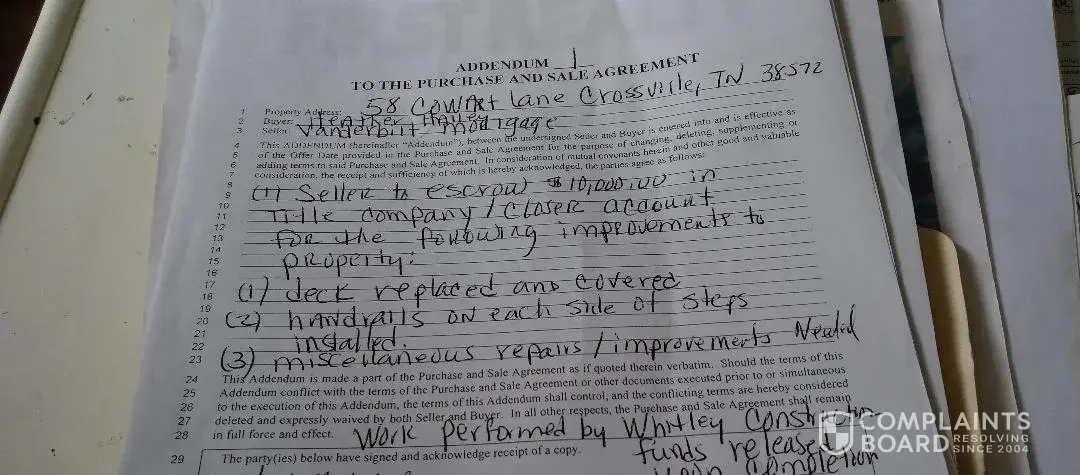 ADDENDUM 1
TO THE PURCHASE AND SALE AGREEMENT
1 Property Address: 58 Cowart Lane Crossville, TN 38572
2 Buyer: Heather
3 Seller: Vanderbilt Mortgage
4 This ADDENDUM (hereinafter "Addendum"), between the undersigned Seller and Buyer is entered into and is effective as
5 of the Offer Date provided in the Purchase and Sale Agreement for the purpose of changing, deleting, supplementing or
6 adding terms to said Purchase and Sale Agreement. In consideration of mutual covenants herein and other good and valuable
7 consideration, the receipt and sufficiency of which is hereby acknowledged, the parties agree as follows:
8
9 (1) Seller to escrow $10,000.00 in
10
11 Title company / closer account
12
13 for the following improvements to
14
15 property:
16
17 (1) deck replaced and covered
18
19
20 (2) handrails on each side of steps
21
22 installed.
23 (3) miscellaneous repairs / improvements Needed
24 This Addendum is made a part of the Purchase and Sale Agreement as if quoted therein verbatim. Should the terms of this
25 Addendum conflict with the terms of the Purchase and Sale Agreement or other documents executed prior to or simultaneous
26 to the execution of this Addendum, the terms of this Addendum shall control, and the conflicting terms are hereby considered
27 deleted and expressly waived by both Seller and Buyer. In all other respects, the Purchase and Sale Agreement shall remain
28 in full force and effect. Work performed by Whitley Construction
funds released
29 The party(ies) below have signed and acknowledge receipt of a copy.
upon completion
COMPLAINTS
BOARD RESOLVING
SINCE 2004